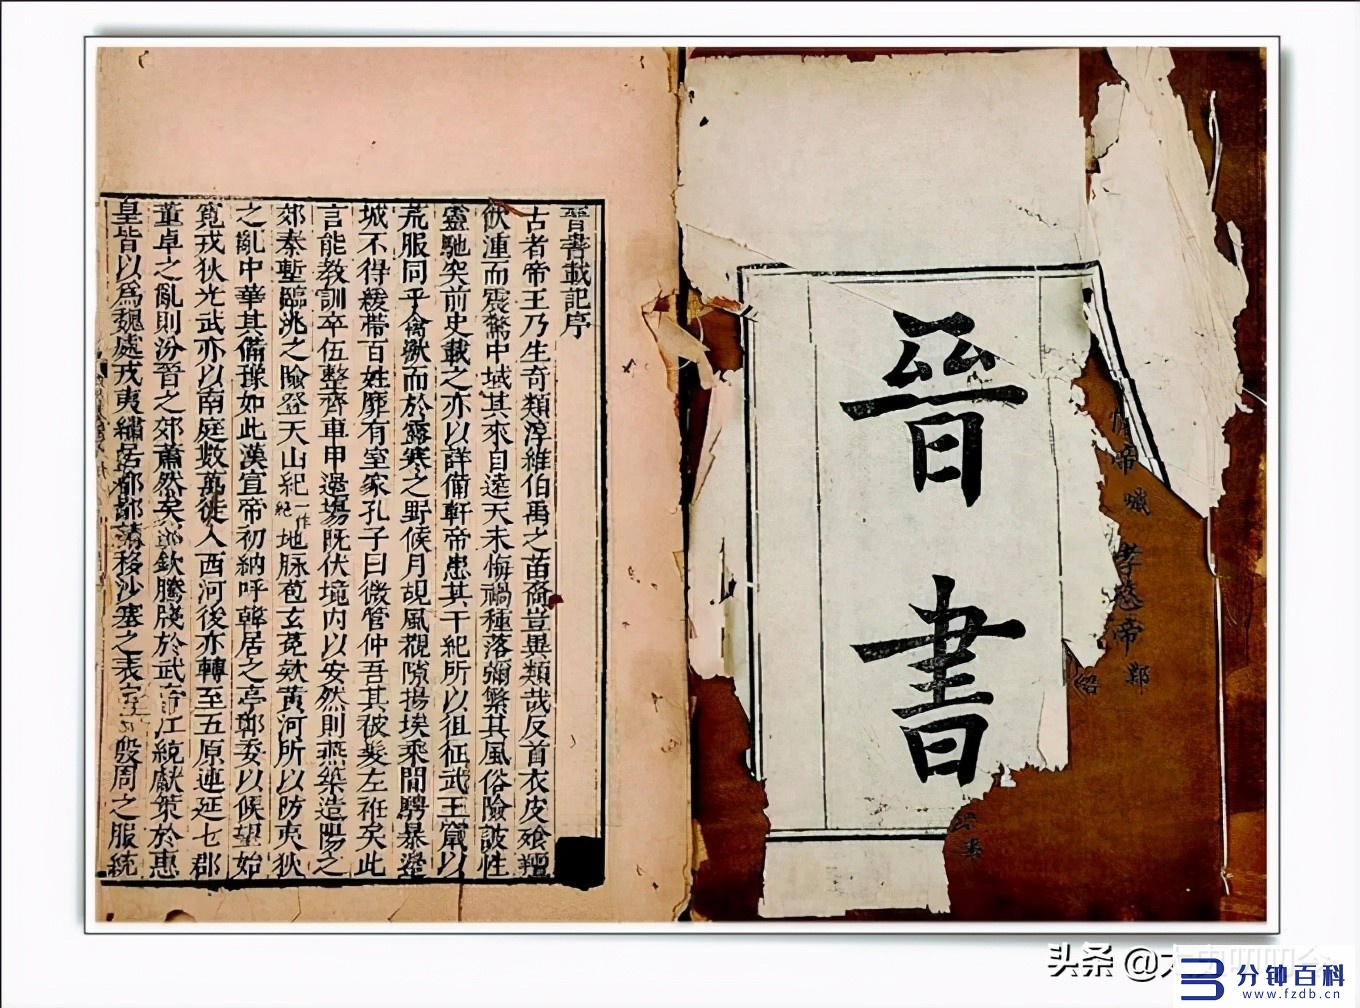 晉書載記序
古者帝王乃生奇類淳維伯禹之苗裔豈異類哉反首衣皮飧羶
飲湩而震驚中域其來自遠天未悔禍種落彌繁其風俗險詖性
靈馳突前史載之亦以詳備軒帝患其干紀所以徂征武王竄以
荒服同乎禽獸而於露寒之野候月覘風覩隙揚埃乘間騁暴邊
城不得緩帶百姓靡有室家孔子曰微管仲吾其被髮左袵矣此
言能教訓卒伍整齊車甲邊場既伏境內以安然則燕築造陽之
郊秦塹臨洮之險登天山紀一作絕地脉苞玄菟欵黃河所以防夷狄
之亂中華其備豫如此漢宣帝初納呼韓居之亭鄣委以候望始
寬戎狄光武亦以南庭數萬徙入西河後亦轉至五原連延七郡
董卓之亂則汾晉之郊蕭然矣郭欽騰牋於武帝江統獻策於惠
皇皆以爲魏處戎夷繡居都鄙請移沙塞之表定一殷周之服統
晉書
帝
孝愍帝鄴
头条 @
分钟百科
www.fzdb.cn